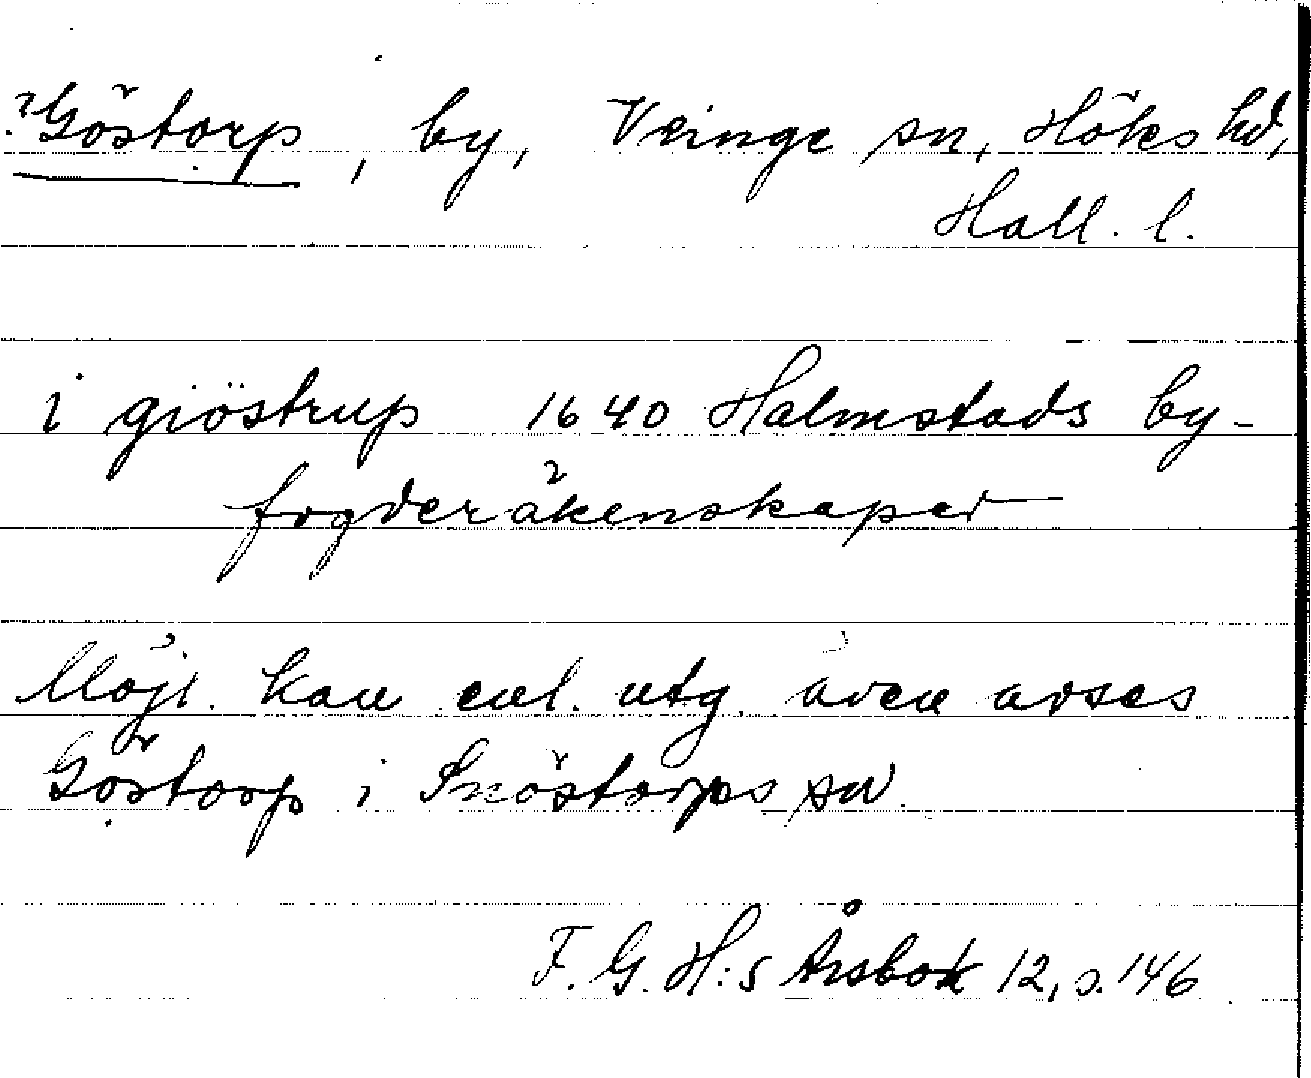 ?Göstorp, by, Veinge sn, Höks hd,
Hall. l.
i giöstrup 1640 Halmstads by-
fogderäkenskaper
Möjl. kan enl. utg. även avses
Göstorp i Snöstorps sn.
F. G. H:s Årsbok 12, s. 146